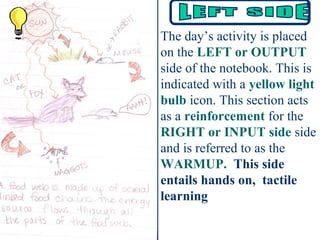 LEFT SIDE
The day's activity is placed
on the LEFT or OUTPUT
side of the notebook. This is
indicated with a yellow light
bulb icon. This section acts
as a reinforcement for the
RIGHT or INPUT side side
and is referred to as the
WARMUP. This side
entails hands on, tactile
learning
SUN
RABBIT
MOUSE
CAT
or
FOX
AHH!
MAGGOTS
A food web is made up of several
linked food chains. The energy
source flows through all
the parts of the food web.